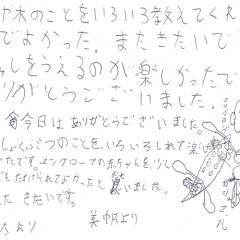 や木のことをいろいろ教えてくれ
でよかった。またきたいで
しをうえるのが楽しかったで
りがとうございいました。
今日はありがとうございました。
しょくぶつのことを、いろいろしれて楽
たです。マングローブの赤ちゃんを、少し
でもたすけられてよかったと思いました。
た きたいです。
美帆より
より